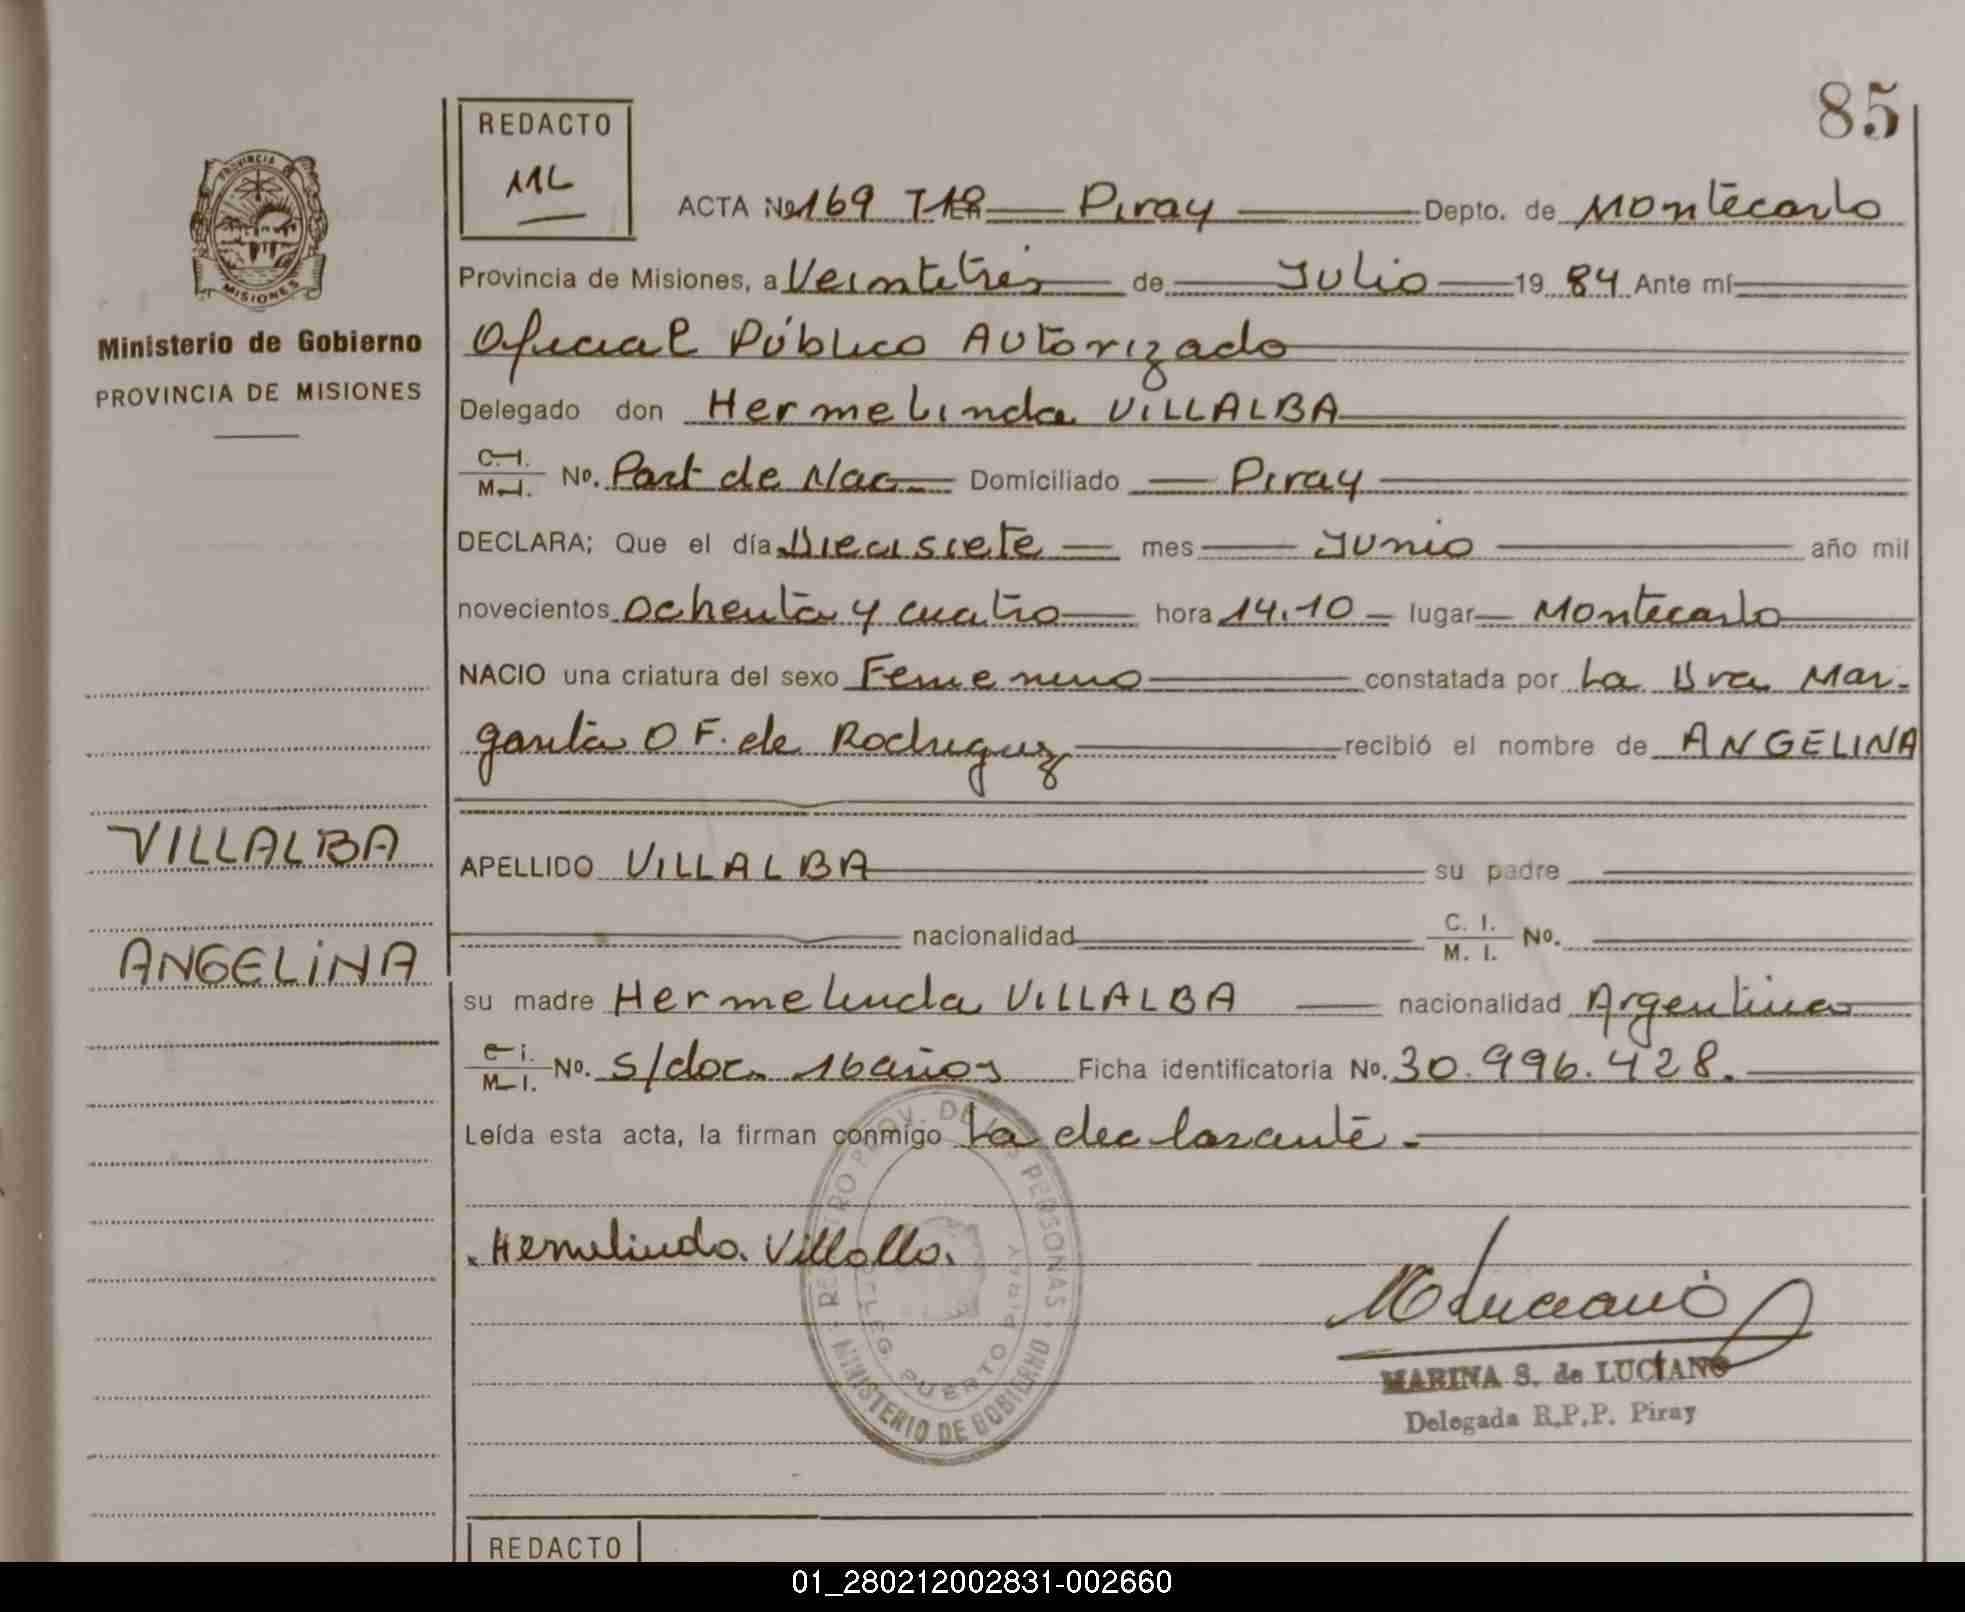 85
REDACTO
ML
PROVINCIA
MISIONES
Ministerio de Gobierno
PROVINCIA DE MISIONES
ACTA No 169 T1R Piray Depto. de Montecarlo
Provincia de Misiones, a Veintetres de Julio 1984 Ante mí
Oficial Público Autorizado
Delegado don Hermelinda VILLALBA
C.I. M.I. No. Part de Nac. Domiciliado Piray
DECLARA; Que el día Diecisiete mes Junio año mil
novecientos ochenta y cuatro hora 14.10 lugar Montecarlo
NACIO una criatura del sexo Femenino constatada por La Dra Mar-
garita O F. de Rodriguez recibió el nombre de ANGELINA
VILLALBA
ANGELINA
APELLIDO VILLALBA su padre
nacionalidad C. I. M. I. No.
su madre Hermelinda VILLALBA nacionalidad Argentina
C.I. M.I. No. S/doc. 16 años Ficha identificatoria No. 30.996.428.
Leída esta acta, la firman conmigo La declarante.
Hermelinda Villalba.
REGISTRO PROV. DE LAS PERSONAS
MINISTERIO DE GOBIERNO
DELEG. PUERTO PIRAY
MLuciano
MARINA S. de LUCIANO
Delegada R.P.P. Piray
REDACTO
01_280212002831-002660